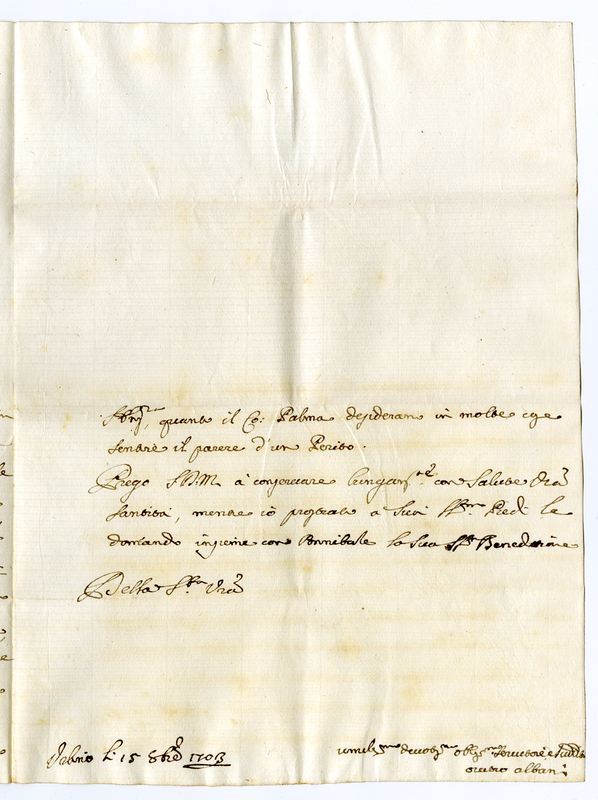 quanto il Co: Palma desiderano in molte cose
sentire il parere d'un Perito.
Prego S.D.M. à conservare lungam.te con salute Vra
Santità, mentre io prostrato a Suoi SS.mi Piedi le
domando insieme con Annibale la sua S.ta Benedizione
Della S.tà Vra
li 15 8bre 1703
umiliss.mo devotiss.mo obblig.mo Servitore e
orazio albani